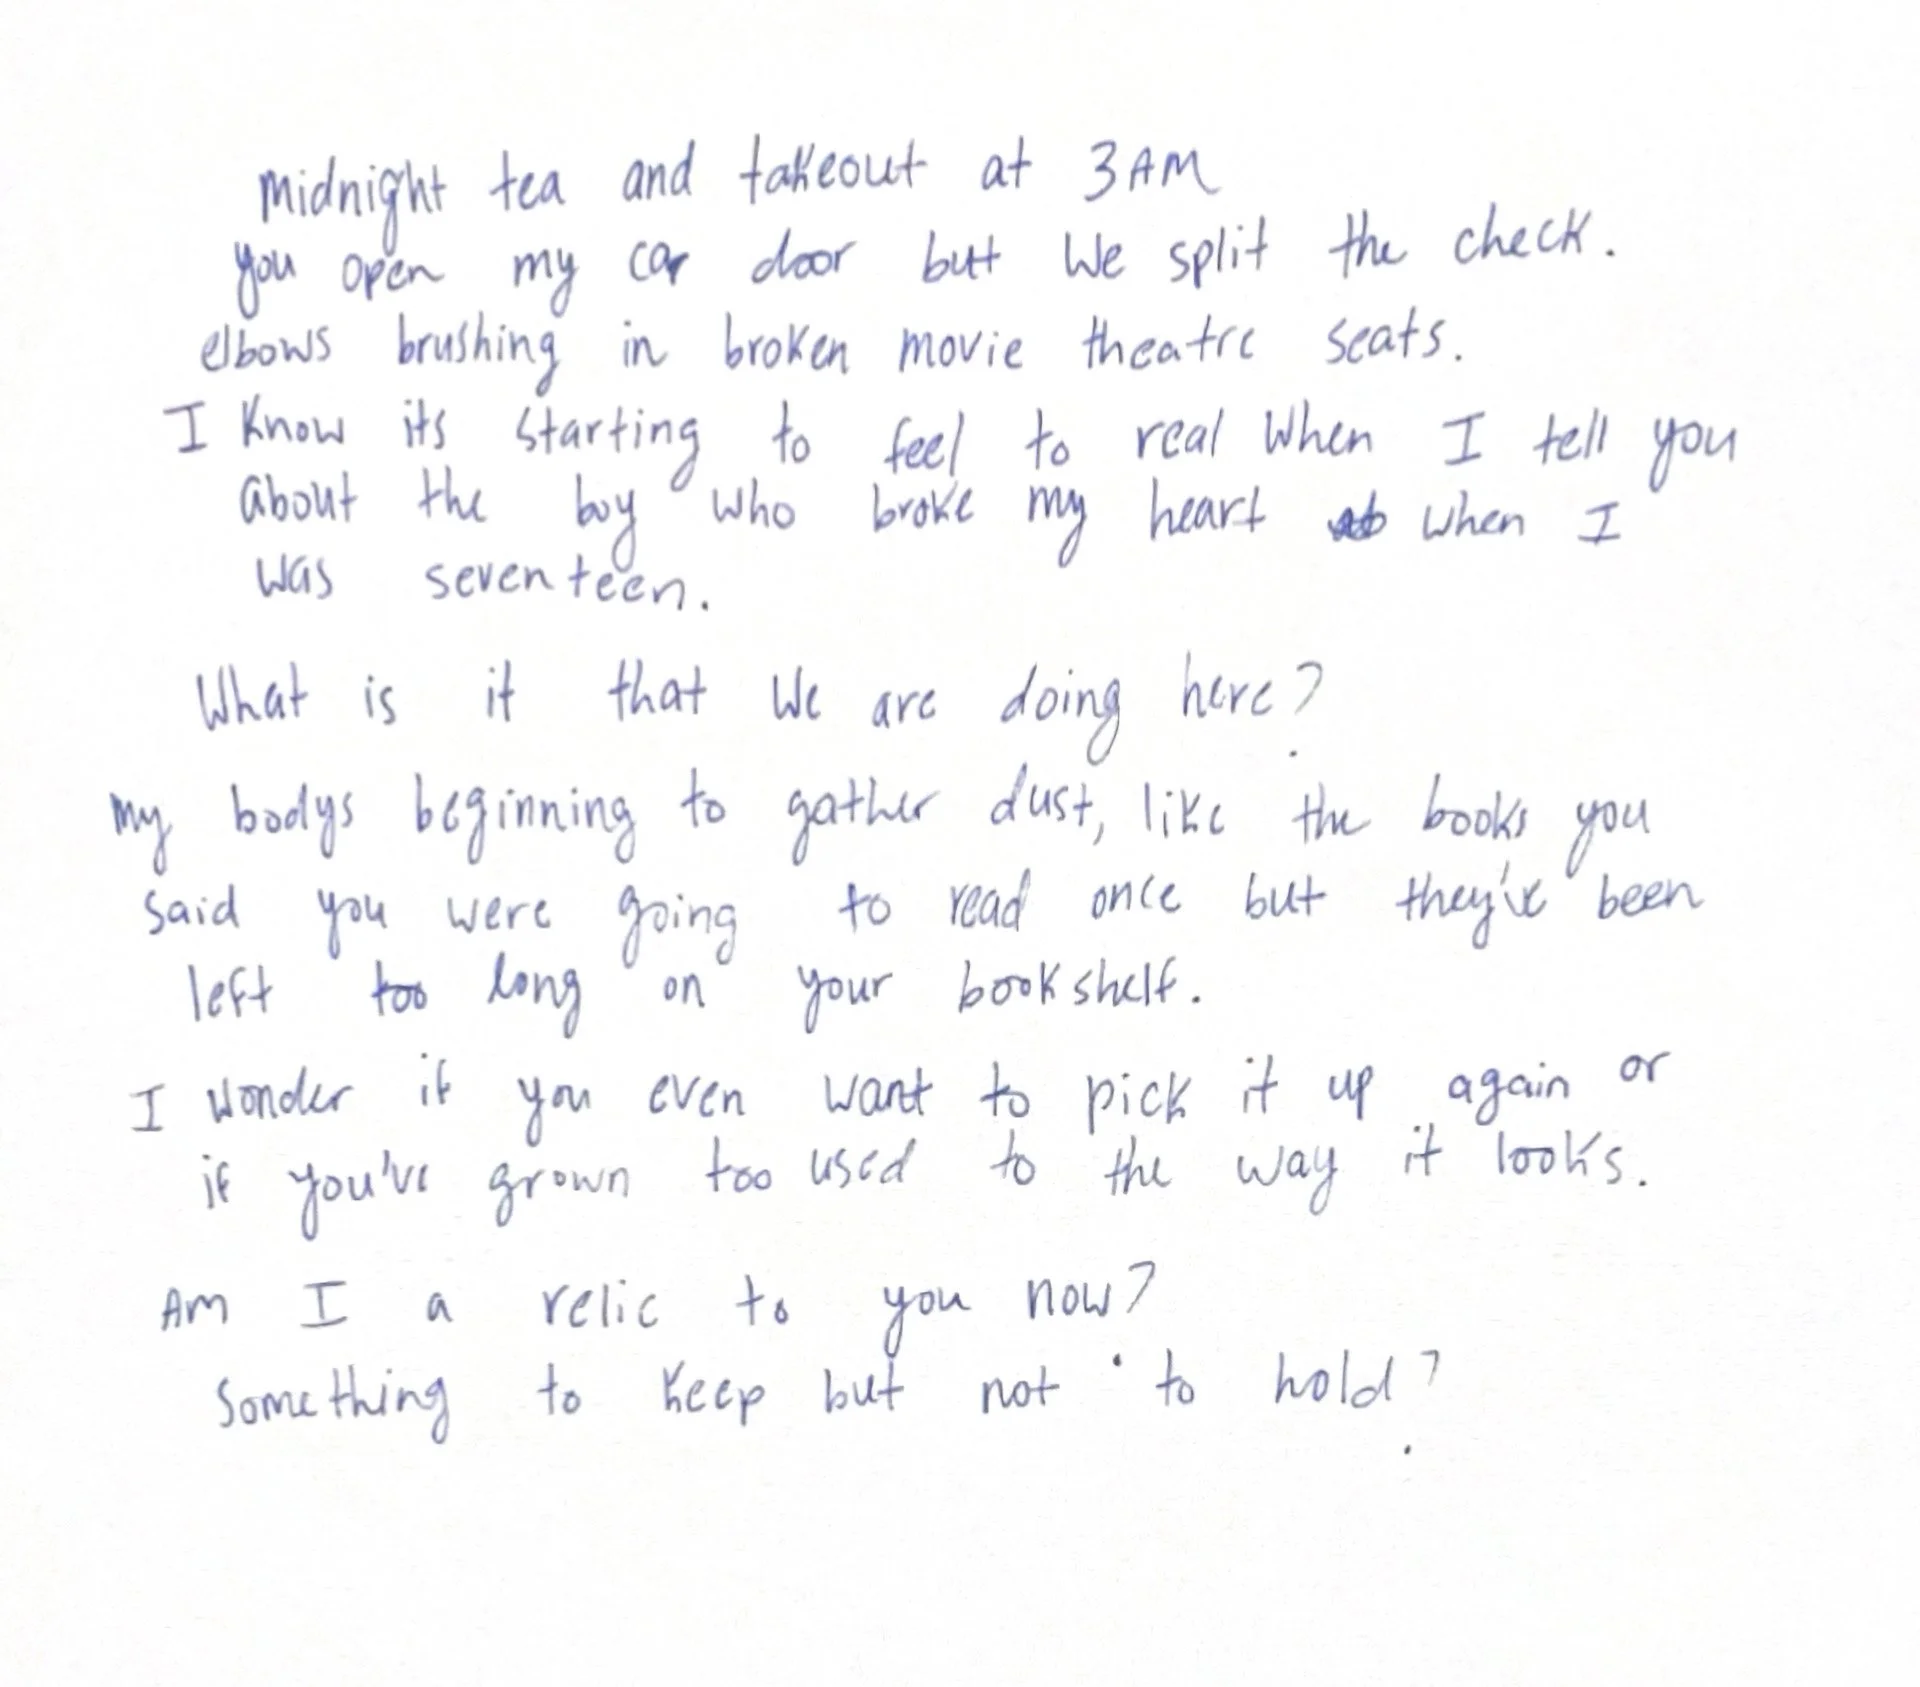 Midnight tea and takeout at 3AM
you open my car door but we split the check.
elbows brushing in broken movie theatre seats.
I know its starting to feel to real when I tell you
about the boy who broke my heart when I
was seventeen.
What is it that we are doing here?
my bodys beginning to gather dust, like the books you
said you were going to read once but they've been
left too long on your bookshelf.
I wonder if you even want to pick it up again or
if you've grown too used to the way it looks.
Am I a relic to you now?
Something to keep but not to hold?